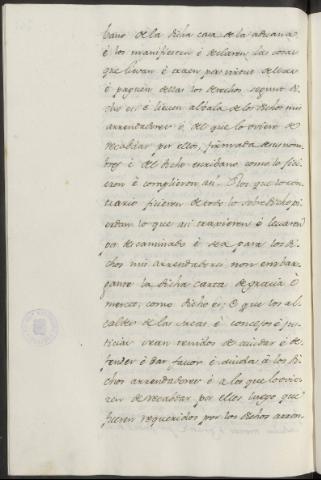 bano de la dicha casa de la aduana
é los manifiesten é declaren las cosas
que llevan é traen por
é paguen dellas los derechos segunt di-
cho es é lieven albala de los dichos mis
arrendadores é del que lo oviere de
recabdar por ellos, firmada de su nom-
bre é del dicho escribano como lo fici-
eron é complieron así. E los que lo con-
trario ficieren de todo lo sobredicho pi-
erdan lo que así traxieren é levaren
por descaminado é sea para los di-
chos mis arrendadores, non embar-
gante la dicha carta de gracia é
merced, como dicho es; é que los al-
caldes de las sacas é concejos é jus-
ticias sean tenidos de ayudar é de-
fender é dar favor é aiuda á los di-
chos arrendadores é a los que lo ovie-
ren de recabdar por ellos luego que
fueren requeridos por los dichos arren-